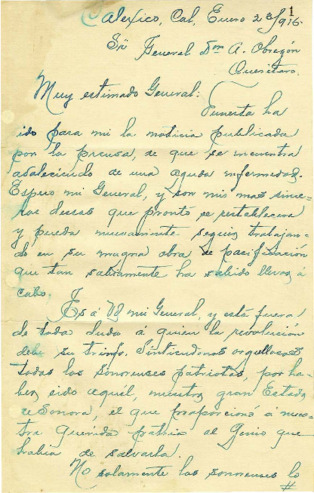 Calexico, Cal, Enero 28/916.
Sr. General Dn A. Obregón
Querétaro.
Muy estimado General:
Funesta ha
ido para mi la noticia publicada
por la prensa, de que se encuentra
adoleciendo de una aguda enfermedad.
Espero mi General, y son mis mas since-
ros deseos que pronto se restablezca
y pueda nuevamente seguir trabajan-
do en su magna obra de pacificación
que tan sabiamente ha sabido llevar á
cabo.
Es á Ud mi General, y está fuera
de toda duda á quien la revolución
debe su trinfo. Sintiendonos orgullosos
todos los sonorenses patriotas, por ha-
ber sido aquel, nuestro gran Estado
de Sonora, el que proporcionó á nues-
tra querida patria al Genio que
habia de salvarla.
No solamente los sonorenses lo